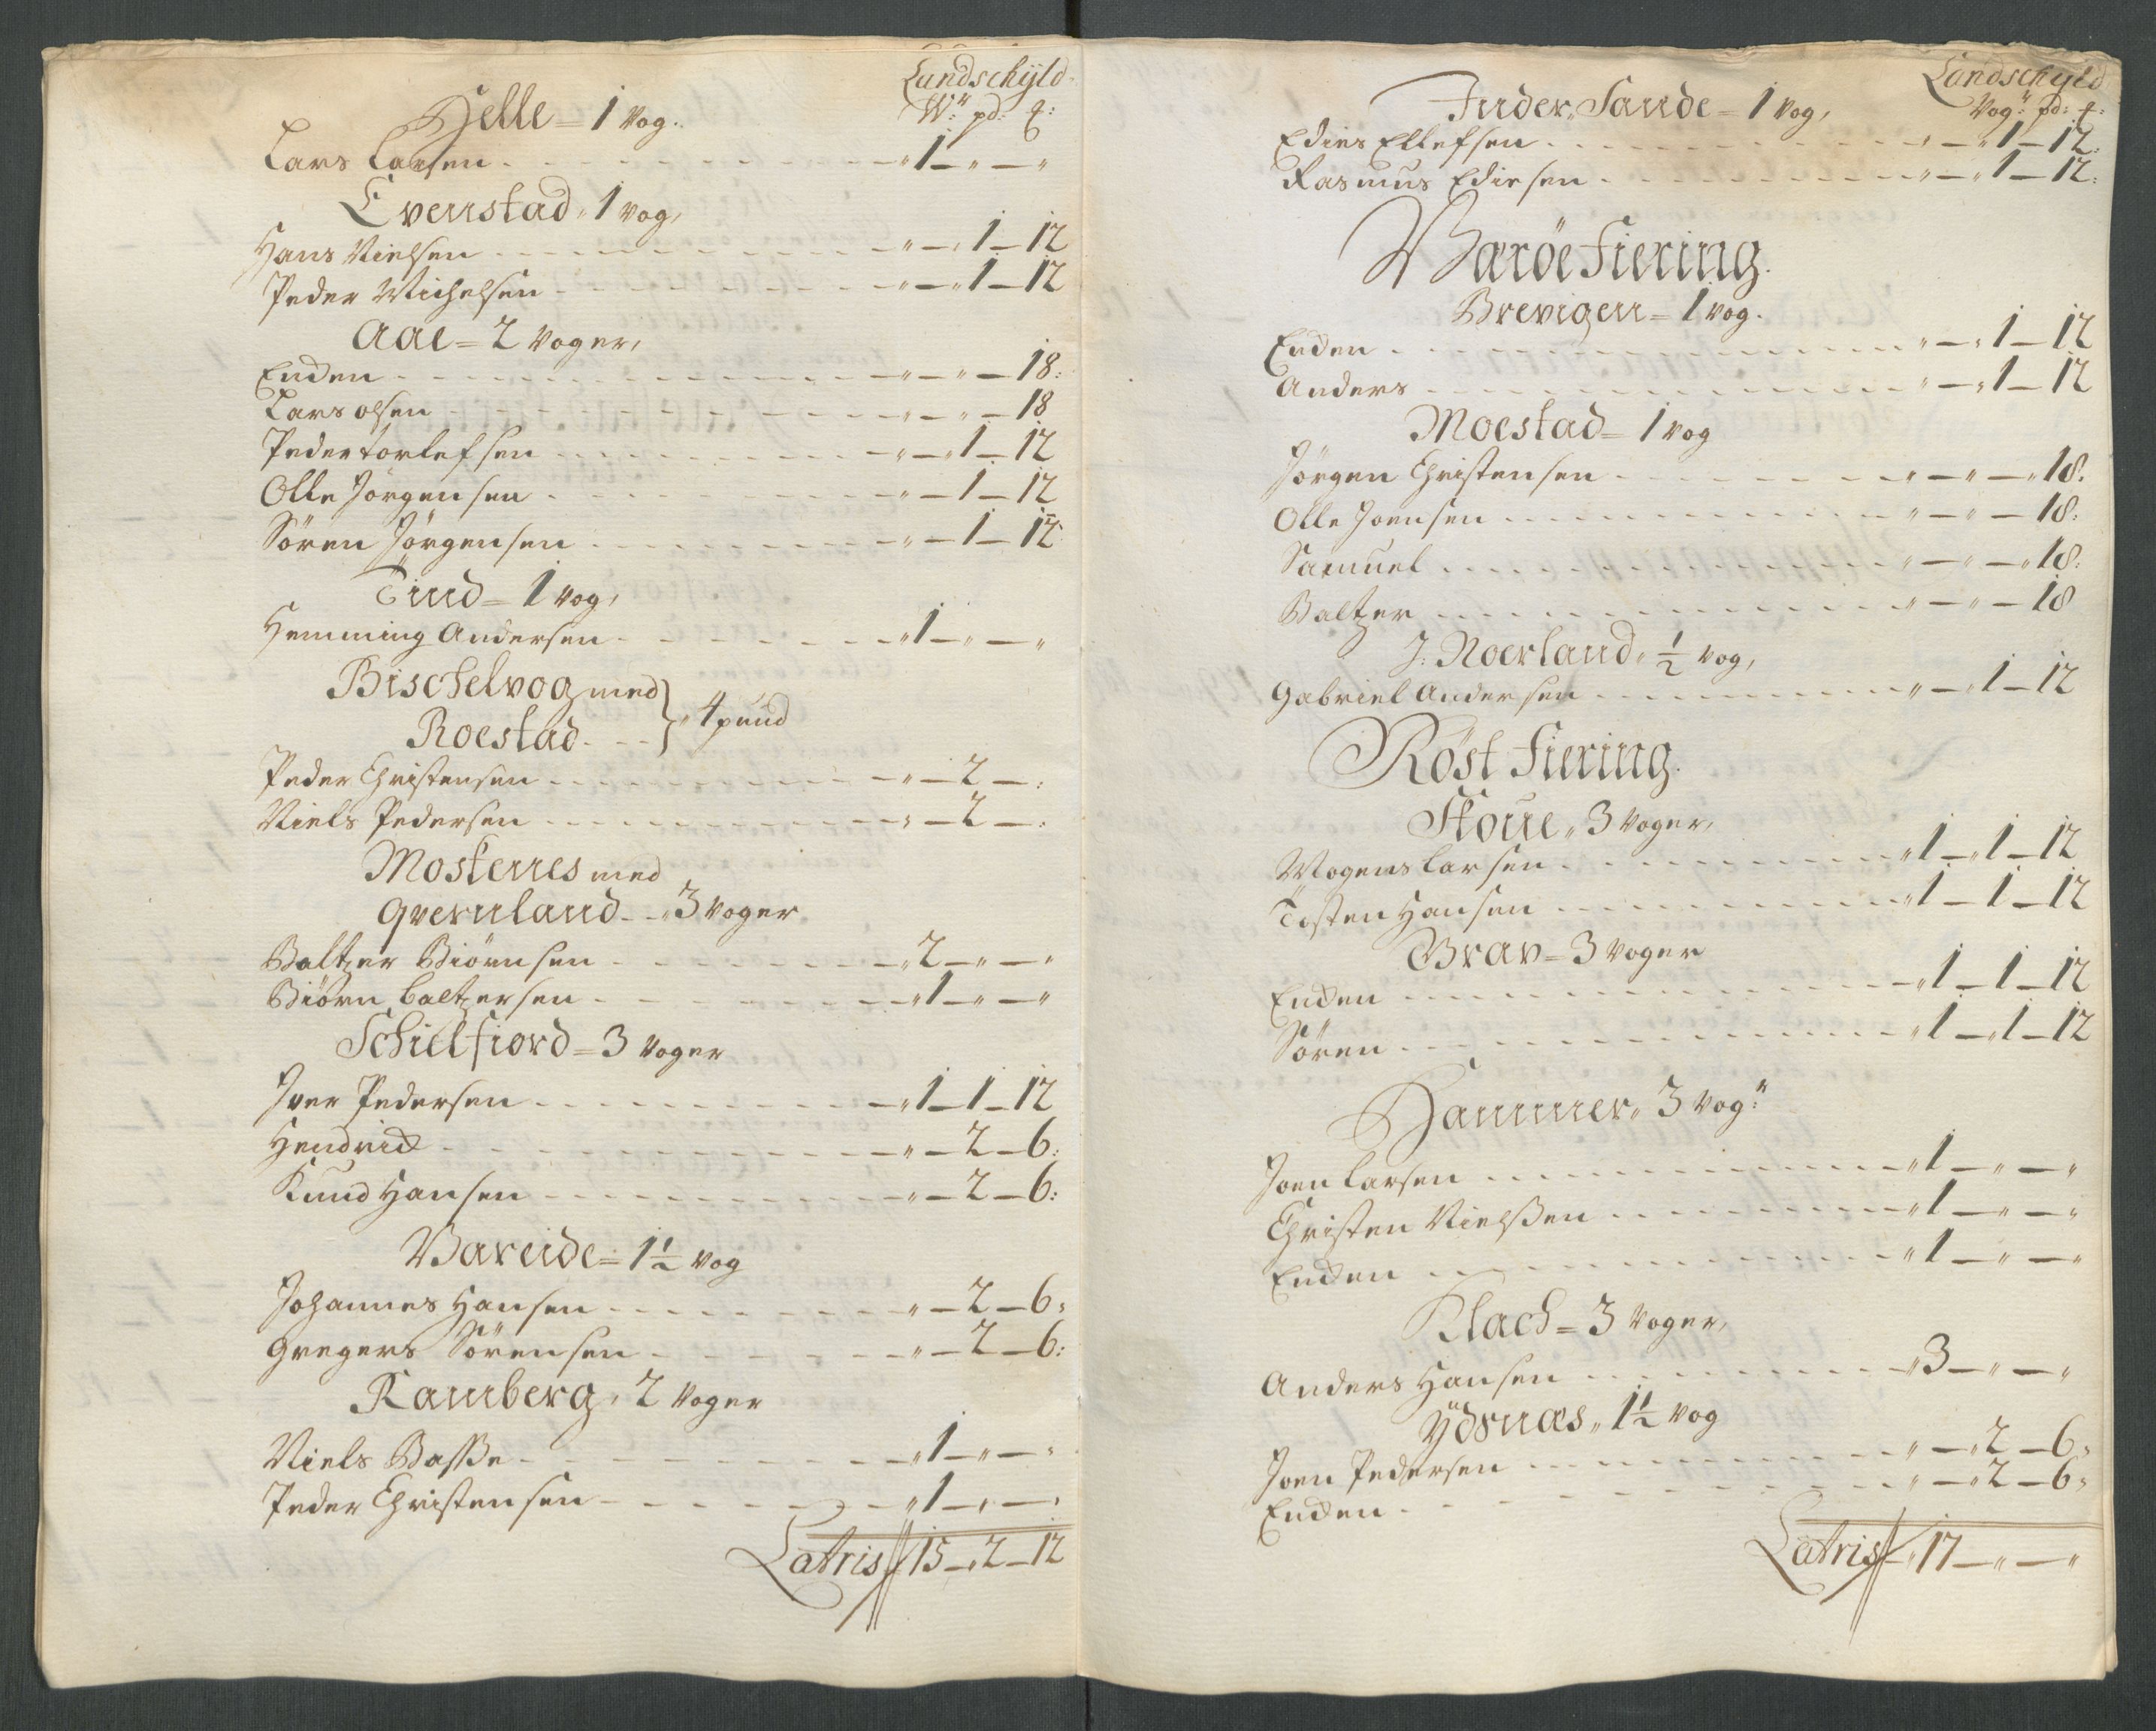 Landschyld
W: pd: ₰:
Helle = 1 Vog.
Lars Larsen - - - " 1 - " - "
Evenstad " 1 vog,
Hans Nielsen - - - " - " 1 - 12
Peder Michelsen - - - " - " 1 - 12
Aae = 2 Voger,
Enden - - - " - " - 18:
Lars olsen - - - " - " - 18
Peder torlefsen - - - " - " 1 - 12
Olle Jörgensen - - - " - 1 - 12
Sören Jörgensen - - - " - 1 - 12
Tind = 1 Vog,
Hemming Andersen - - - " 1 - " - "
Bischelvog med
Roestad - - } " 4 pund
Peder Christensen - - - " - 2 - :
Niels Pedersen - - - " - 2 - :
Moskenes med
Qvernland - - " 3 Voger
Baltzer Biörnsen - - - " 2 - " - "
Biörn baltzersen - - - " 1 - " - "
Schielfiord = 3 Voger
Iver Pedersen - - - " 1 - 1 - 12
Hendrick - - - " - 2 - 6:
Knud Hansen - - - " - 2 - 6:
Vareide = 1½ Vog
Johannes Hansen - - - " - 2 - 6:
Gregers Sörensen - - - " - 2 - 6:
Ramberg, 2 Voger
Niels Basse - - - " 1 - " - "
Peder Christensen - - - " 1 - " - "
Latris 15 - 2 - 12
Landschyld
Vog: pd: ₰:
Inder Sande = 1 Vog,
Edies Ellefsen - - - " - " 1 - 12:
Rasmus Ediesen - - - " - " 1 - 12:
Waröe Fiering.
Brevigen = 1 Vog.
Enden - - - " - " 1 - 12
Anders - - - " - " 1 - 12
Moestad = 1 Vog
Jörgen Christensen - - - " - " - " 18.
Olle Joensen - - - " - " - 18:
Samuel - - - " - " - " 18:
Baltzer - - - " - " - 18
J: Noerland " ½ Vog,
Gabriel Andersen - - - " - " 1 - 12
Röst Fiering.
Stoue " 3 Voger,
Mogens Larsen - - - " 1 - " 1 - 12
Tosten Hansen - - - " 1 - 1 - 12
Brav = 3 Voger
Enden - - - " 1 - 1 - 12
Sören - - - " 1 - " 1 - 12
Hammer " 3 Vog:
Joen Larsen - - - " 1 - " - "
Christen Nielssen - - - " 1 - " - "
Enden - - - " 1 - " - "
Klach = 3 Voger,
Anders Hansen - - - " 3 - " - "
Ydsnæs " 1½ Vog
Joen Pedersen - - - " - " 2 - 6:
Enden - - - " - " 2 - 6:
Latris " 17 - " - "